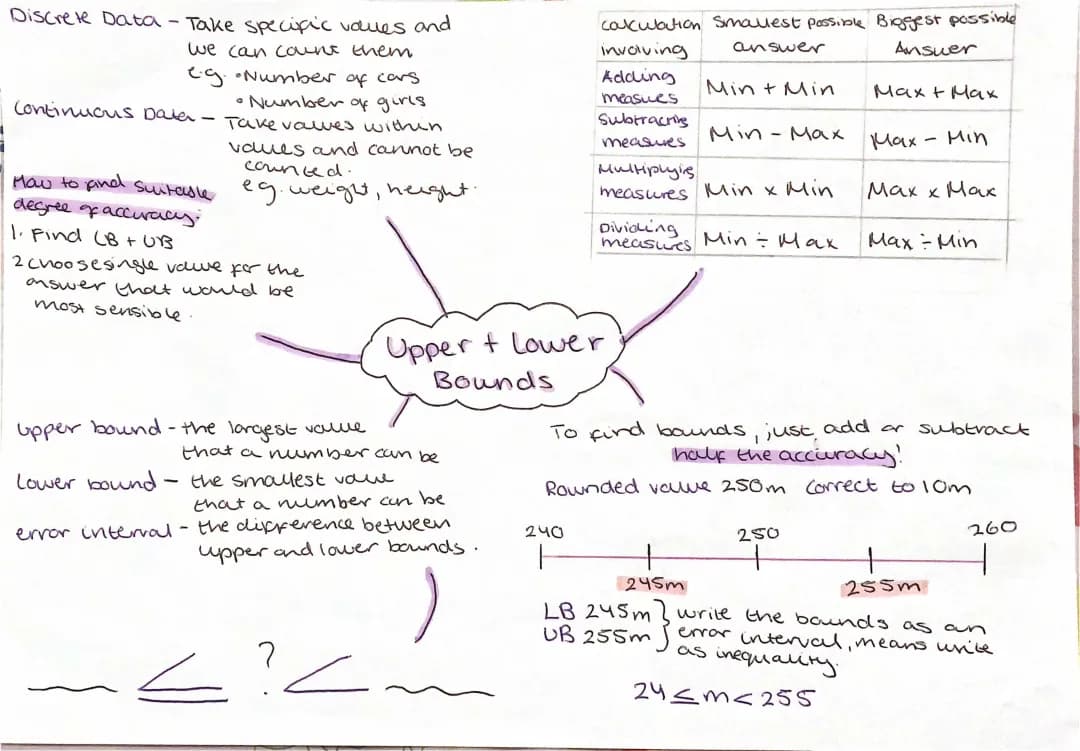 Discrete Data - Take specific values and
we can count them
e.g. •Number of cars
•Number of girls
Continuous Data - Take values within
values and cannot be
counted.
eg. weight, height.
How to find suitable
degree of accuracy:
1. Find LB + UB
2 choose single value for the
answer that would be
most sensible.
Calculation Involving | Smallest possible answer | Biggest possible Answer
Adding measues | Min + Min | Max + Max
Subtracting measures | Min - Max | Max - Min
Multiplying measures | Min x Min | Max x Max
Dividing measures | Min ÷ Max | Max ÷ Min
Upper + Lower
Bounds
Upper bound - the largest value
that a number can be
Lower bound - the smallest value
that a number can be
error interval - the difference between
upper and lower bounds.
≤ ? <
To find bounds, just add or subtract
half the accuracy!
Rounded value 250m correct to 10m
240 250 260
245m 255m
LB 245m } write the bounds as an
UB 255m } error interval, means write
as inequality.
24 ≤ m < 255